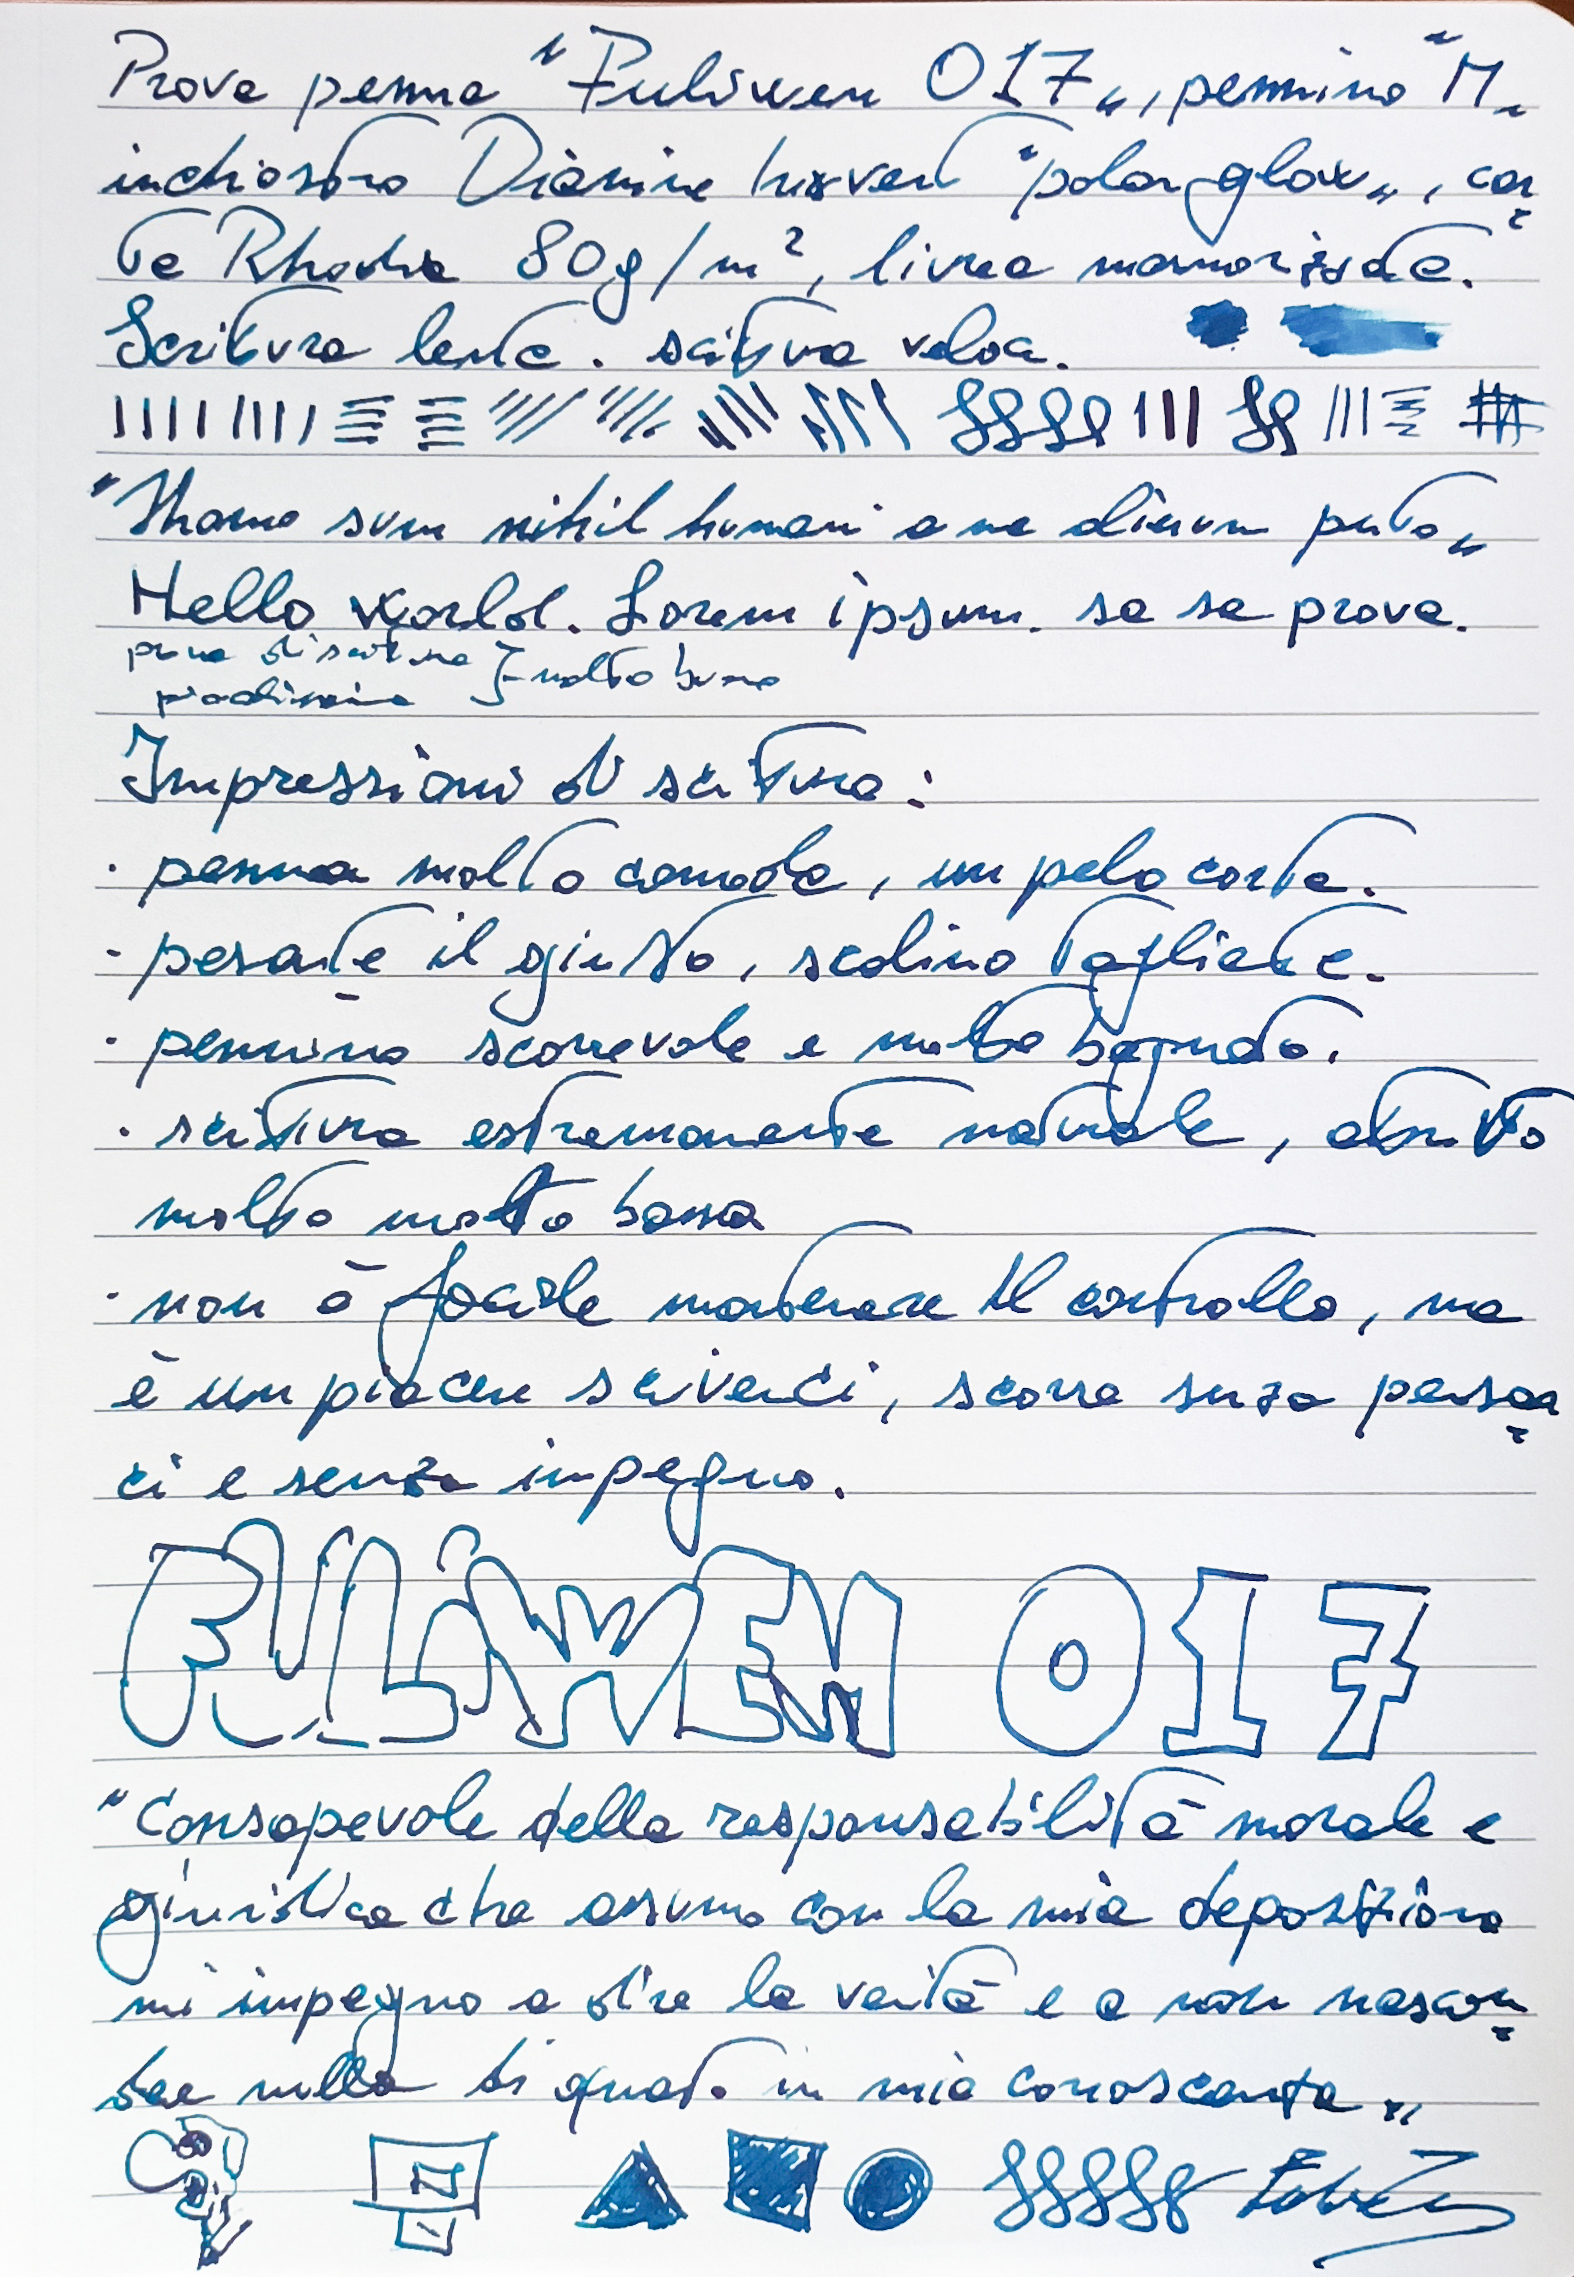 Prova penna "Fuliwen 017", pennino "M"
inchiostro Diamine Inkvent "polar glow", car
ta Rhodia 80g/m², livrea marmorizzata.
Scrittura lenta. scrittura veloce.
"Homo sum nihil humani a me alienum puto"
Hello world. Lorem ipsum. sa sa prova.
prova di scrittura
piccolissima } molto buona
Impressioni di scrittura:
· penna molto comoda, un pelo corta.
- pesante il giusto, scalino tagliente.
· pennino scorrevole e molto bagnato.
· scrittura estremamente naturale, attrito
molto molto bassa
· non è facile mantenere il controllo, ma
è un piacere scriverci, scorre senza pensar
ci e senza impegno.
FULIWEN 017
"Consapevole della responsabilità morale e
giuridica che assumo con la mia deposizione
mi impegno a dire la verità e a non nascon
dere nulla di quanto in mia conoscenza"